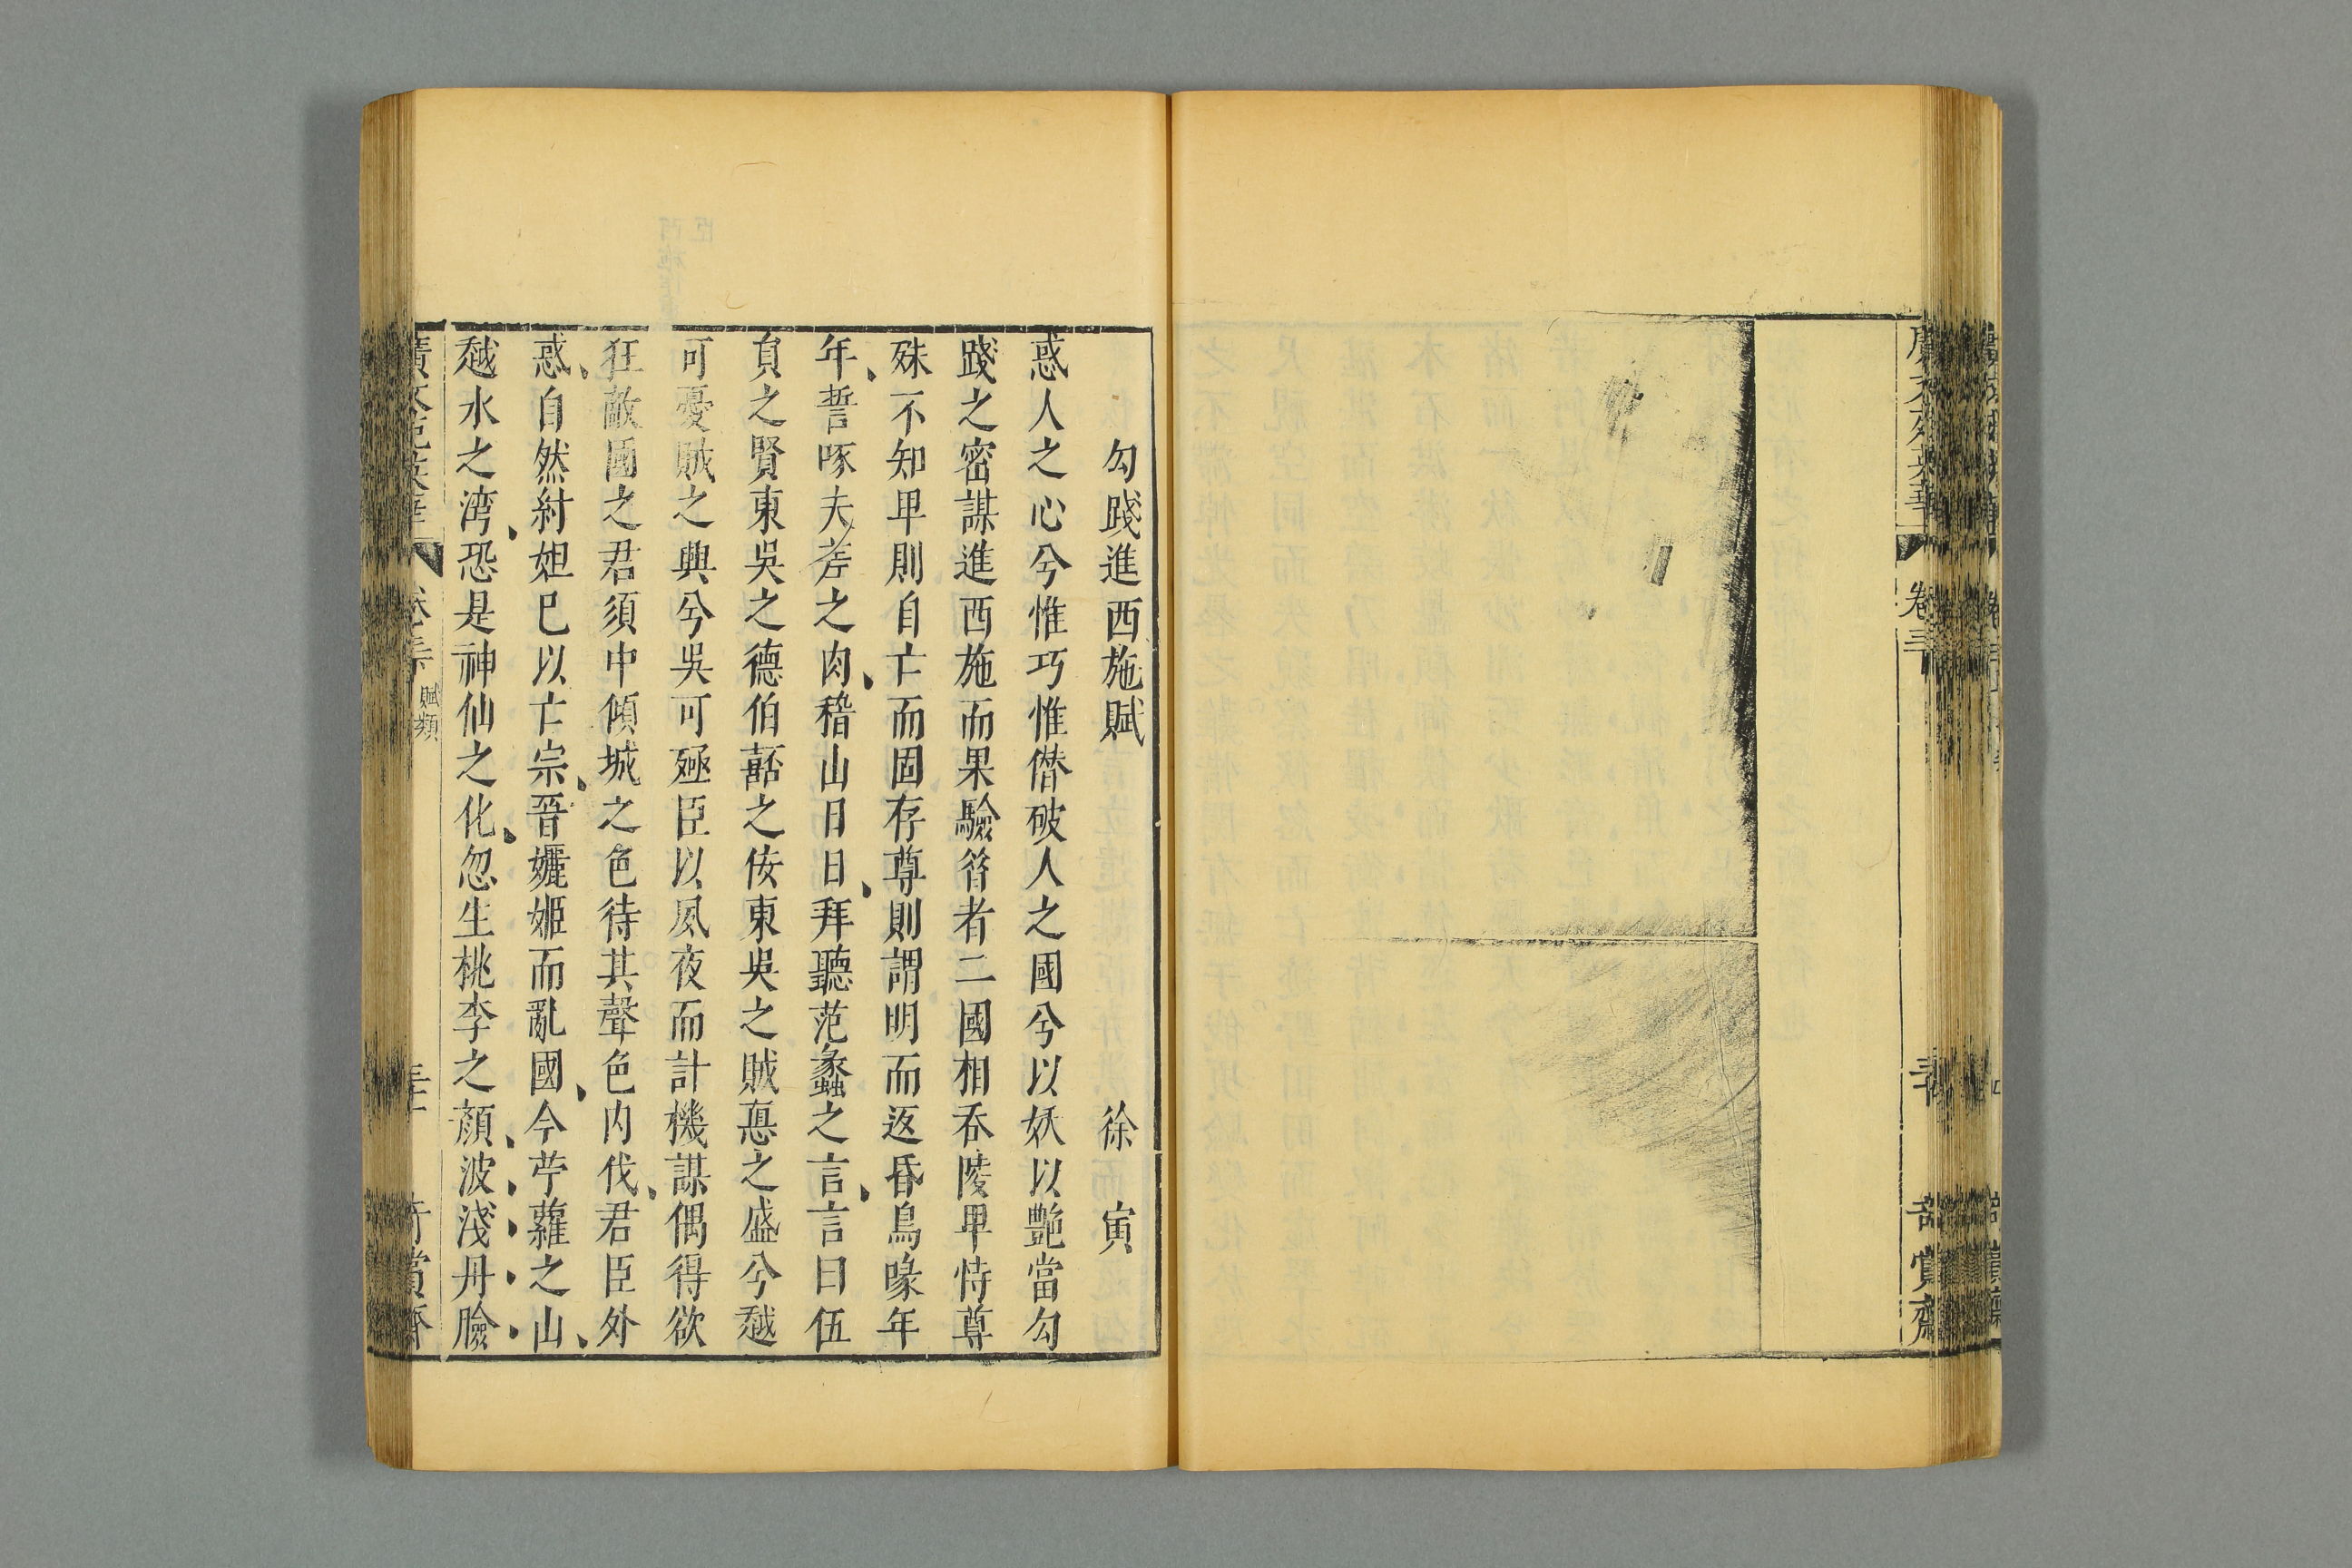 廣文苑英華
卷三
奇賞齋
勾踐進西施賦 徐寅
惑人之心兮惟巧惟僭破人之國兮以妖以艷當勾
踐之密謀進西施而果驗昝者二國相吞陵畢恃尊
殊不知卑則自亡而固存尊則謂明而返昏鳥喙年
年誓啄夫差之肉稽山日日拜聽范蠡之言言曰伍
員之賢東吳之德伯嚭之侫東吳之賊悳之盛兮越
可憂賊之興兮吳可殛臣以夙夜而計機謀偶得欲
狂敵國之君須中傾城之色待其聲色内伐君臣外
惑自然紂妲巳以亡宗晉孋姬而亂國今苧蘿之山
越水之湾恐是神仙之化忽生桃李之顏波淺丹臉
廣文苑英華
賦類
奇賞齋